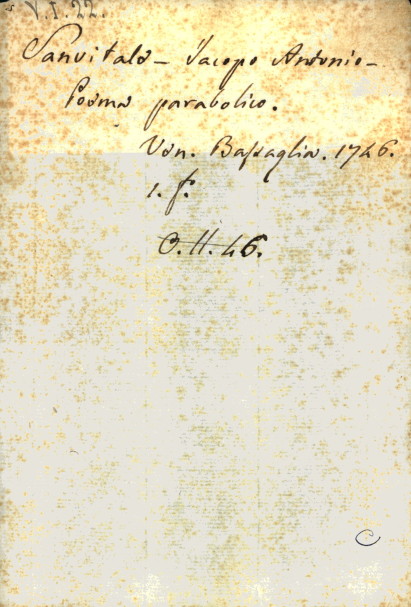 V.I.22.
Sanvitale – Jacopo Antonio –
Poema parabolico.
Ven. Bassaglia. 1746.
1. f.
O.II.46.
C